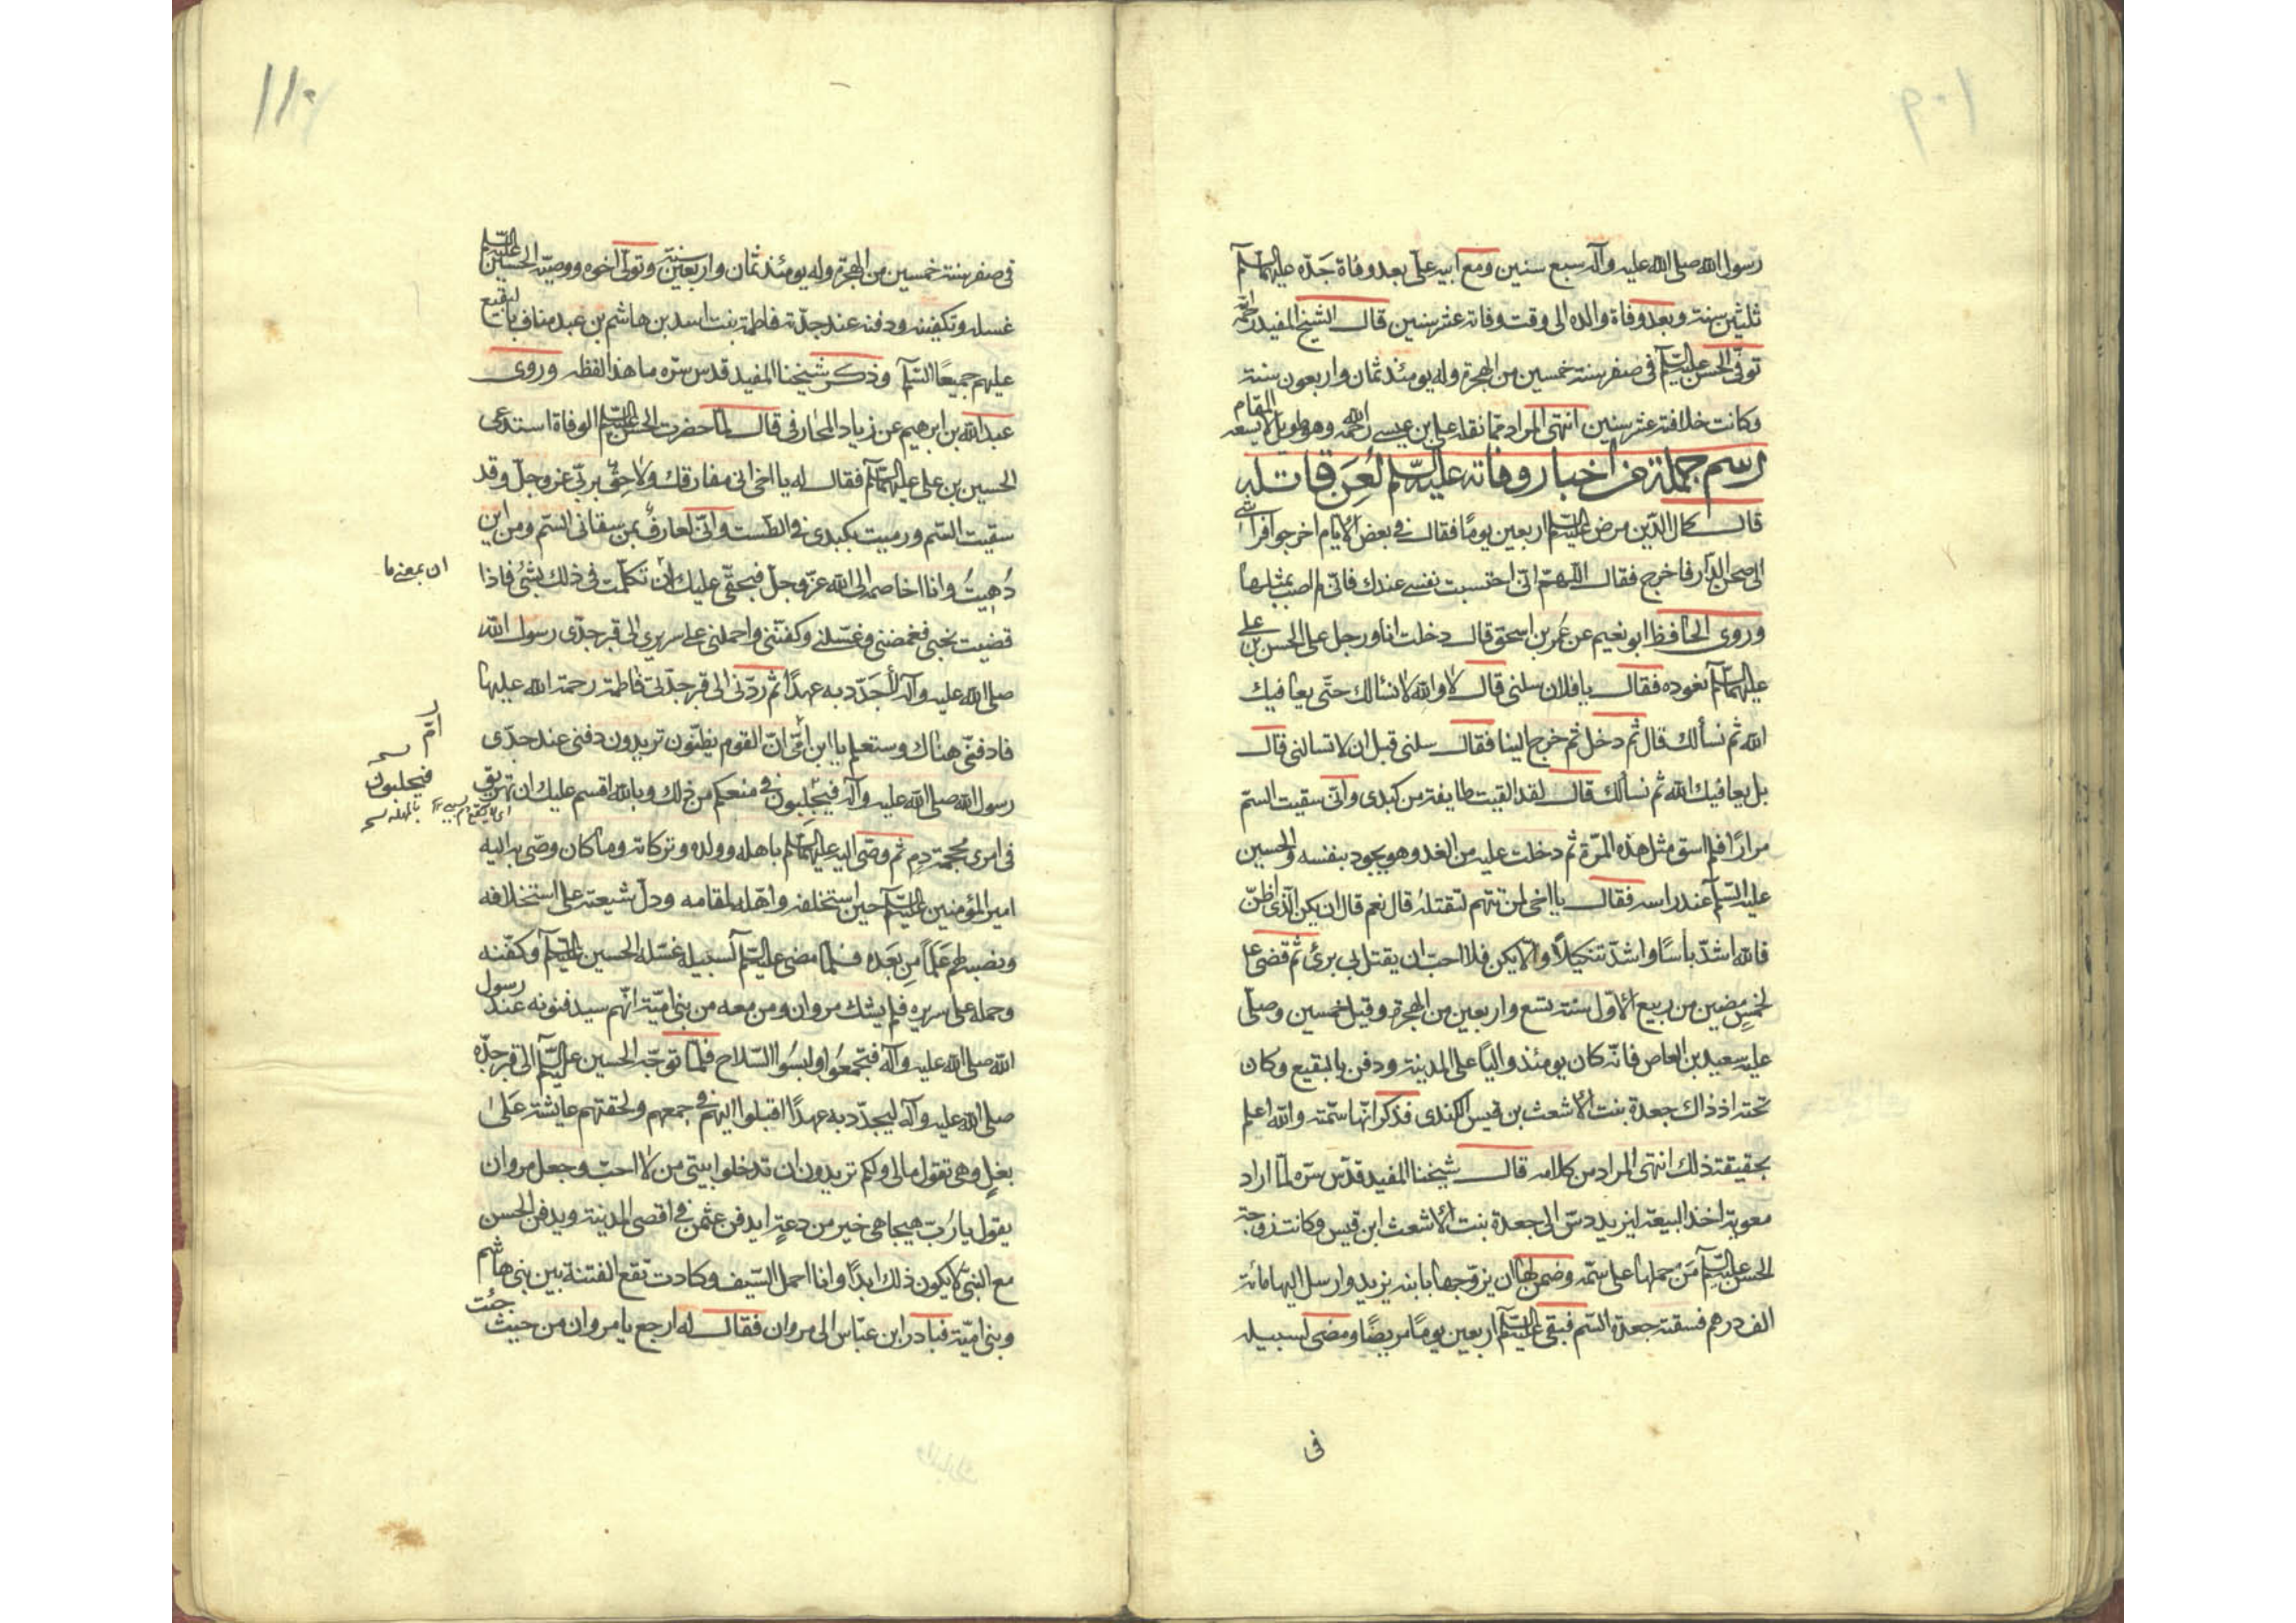 ١٠٩
رسول الله صلى الله عليه وآله سبع سنين ومع ابيه علىّ بعد وفاة جَدّه عليهما السلم
ثلثين سنة وبعد وفاة والده الى وقت وفاته عشر سنين قال الشيخ المفيد رحمه الله
توفّى الحسن عليه السلم فى صفر سنة خمسين من الهجرة وله يومئذ ثمان واربعون سنة
وكانت خلافته عشر سنين انتهى المراد مما نقله على بن عيسى رحمه الله وهو طويل لا يسعه المقام
رسم جملة من اخبار وفاته عليه السلم لُعِنَ قاتله
قال كمال الدّين مرض عليه السلم اربعين يومًا فقال فى بعض الايام اخرجوا فراشى
الى صحن الدّار فاخرج فقال اللهمّ انّى احتسبت نفسى عندك فانّى لم اصب بمثلها
وروى الحافظ ابو نعيم عن عُمر بن اسحق قال دخلت انا ورجل على الحسن بن على
عليهما السلم نعوده فقال يا فلان سلنى قال لا والله لا نسالك حتّى يعافيك
الله ثم نسألك قال ثم دخل ثم خرج الينا فقال سلنى قبل ان لا تسالنى قال
بل يعافيك الله ثم نسألك قال لقد القيت طايفة من كبدى وانّى سقيت السّم
مرارًا فلم اسق مثل هذه المرّة ثم دخلت عليه من الغد وهو يجود بنفسه والحسين
عليه السلم عند راسه فقال يا اخى لمن تتهم لتقتله قال نعم قال ان يكن الّذى اظنّ
فالله اشدّ بأسًا واشدّ تنكيلًا والّا يكن فلا احبّ ان يقتل بى برئ ثم قضى على
لخمسٍ مضين من ربيع الاوّل سنة تسع واربعين من الهجرة وقيل خمسين وصلّى
عليه سعيد بن العاص فانّه كان يومئذ واليًا على المدينة ودفن بالبقيع وكان
تحته اذ ذاك جعدة بنت الاشعث بن قيس الكندى فذكر انّها سمّته والله اعلم
بحقيقة ذلك انتهى المراد من كلامه قال شيخنا المفيد قدّس سرّه لمّا اراد
معوية اخذ البيعة ليزيد دسّ الى جعدة بنت الاشعث ابن قيس وكانت زوجة
الحسن عليه السلم مَنْ حملها على سمّه وضمن لها ان يزوّجها بابنه يزيد وارسل اليها مائة
الف درهم فسقته جعدة السّم فبقى عليه السلم اربعين يومًا مريضًا ومضى لسبيله
فى
١١٠
فى صفر سنة خمسين من الهجرة وله يومئذ ثمان واربعين سنة وتولّى اخوه ووصيّه الحسين عليه السلم
غسله وتكفينه ودفنه عند جدّته فاطمة بنت اسد بن هاشم بن عبد مناف بالبقيع
عليهم جميعًا السّلم وذكر شيخنا المفيد قدس سرّه ما هذا لفظه وروى
عبد الله بن ابرهيم عن زياد المحارفى قال لمّا حضرت الحسن عليه السلم الوفاة استدعى
الحسين بن على عليهما السلم فقال له يا اخى انى مفارقك ولاحِقٌ بربّى عز وجلّ وقد
سقيت السّم ورميت بكبدى فى الطست وانّى لعارفٌ بمن سقانى السّم ومن اين
دُهِيتُ وانا اخاصمه الى الله عزّ وجلّ فبحقّى عليك انْ تكلّمت فى ذلك بشئ فاذا
ان بمعنى ما
قضيت نحبى فغمضنى وغسّلنى وكفّنّى واحملنى على سريرى الى قبر جدّى رسول الله
صلى الله عليه وآله لأجَدّد به عهدًا ثم ردّنى الى قبر جدّتى فاطمة رحمة الله عليها
فادفنّى هناك وستعلم يا ابن امّى انّ القوم يظنّون تريدون دفنى عند جدّى
امّ
رسول الله صلى الله عليه وآله فيجلبون فى منعكم من ذلك وبالله اقسم عليك ان تهريق
فيجلبون
فى امرى محجمة دم ثم وصّى اليه عليهما السلم باهله وولده وتركاته وما كان وصّى به اليه
امير المؤمنين عليه السلم حين استخلفه واهّله لمقامه ودلّ شيعته على استخلافه
ونصبه لهم عَلَمًا مِن بَعَده فلمّا مضى عليه السلم لسبيله غسّله الحسين عليه السلم وكفّنه
وحمله على سريره فلم يشك مروان ومن معه من بنى اميّة انّهم سيدفنونه عند رسول
الله صلى الله عليه وآله فتجمعُوا ولبسُوا السّلاح فلمّا توجّه الحسين عليه السّلم الى قبر جدّه
صلى الله عليه وآله ليجدّد به عهدًا اقبلوا اليهم فى جمعهم ولحقتهم عايشة عَلىٰ
بغلٍ وهى تقول مالى ولكم تريدون ان تدخلوا بيتى من لا احبّ وجعل مروان
يقول يا رُبّ هيجا هى خير من دعةٍ ايدفن عثمن فى اقصى المدينة ويدفن الحسن
مع النبىّ لا يكون ذلك ابدًا وانا احمل السّيف وكادت تقع الفتنة بين بنى هاشم
وبنى اميّة فبادر ابن عبّاس الى مروان فقال له ارجع يا مروان من حيث جئت